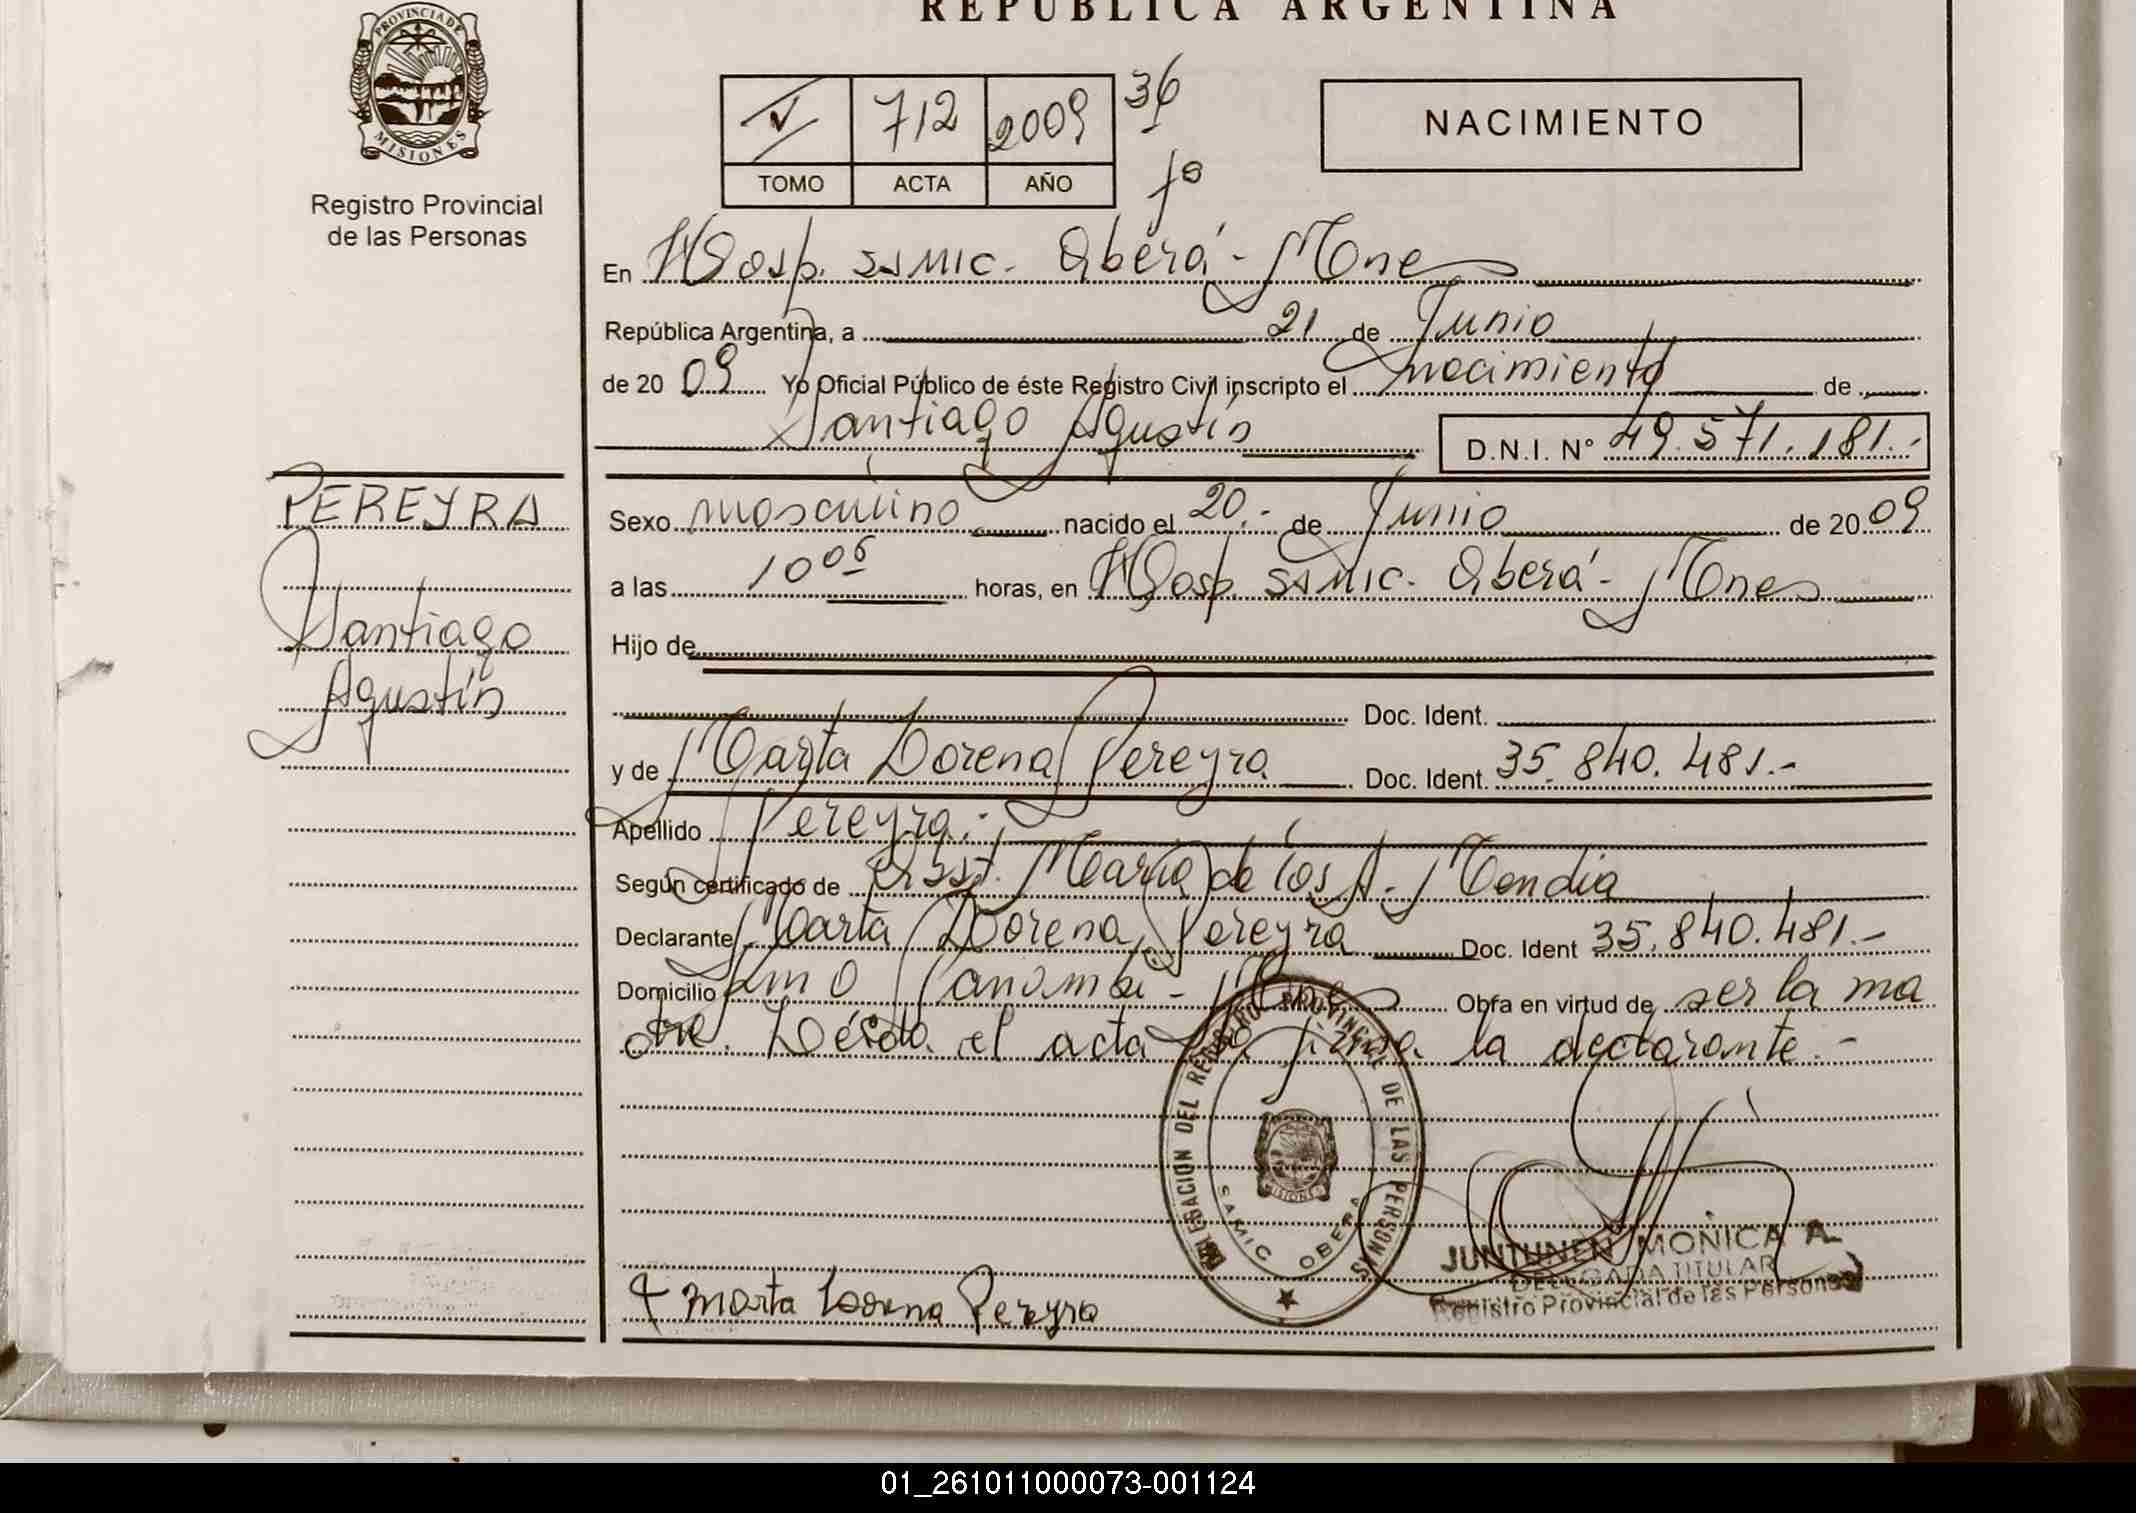 REPUBLICA ARGENTINA
PROVINCIA DE
MISIONES
Registro Provincial
de las Personas
712 2009 36
TOMO ACTA AÑO fº
NACIMIENTO
En Hosp. SAMIC. Oberá - Mnes
República Argentina, a 21 de Junio
de 20 09 Yo Oficial Público de éste Registro Civil inscripto el nacimiento de
Santiago Agustín D.N.I. Nº 49.571.181.-
PEREYRA
Santiago
Agustín
Sexo masculino nacido el 20.- de Junio de 20 09
a las 10 05 horas, en Hosp. SAMIC. Oberá - Mnes
Hijo de
Doc. Ident.
y de Marta Lorena Pereyra Doc. Ident. 35.840.481.-
Apellido Pereyra.-
Según certificado de Obst. María de los A. Mendia
Declarante Marta Lorena Pereyra Doc. Ident 35.840.481.-
Domicilio Panambi - Mnes Obra en virtud de ser la ma
dre. Leída el acta la firma la declarante.-
DELEGACION DEL REGISTRO PROVINCIAL DE LAS PERSONAS
SAMIC OBERA
Marta Lorena Pereyra
JUNTUNEN MONICA A.
DELEGADA TITULAR
Registro Provincial de las Personas
01_261011000073-001124